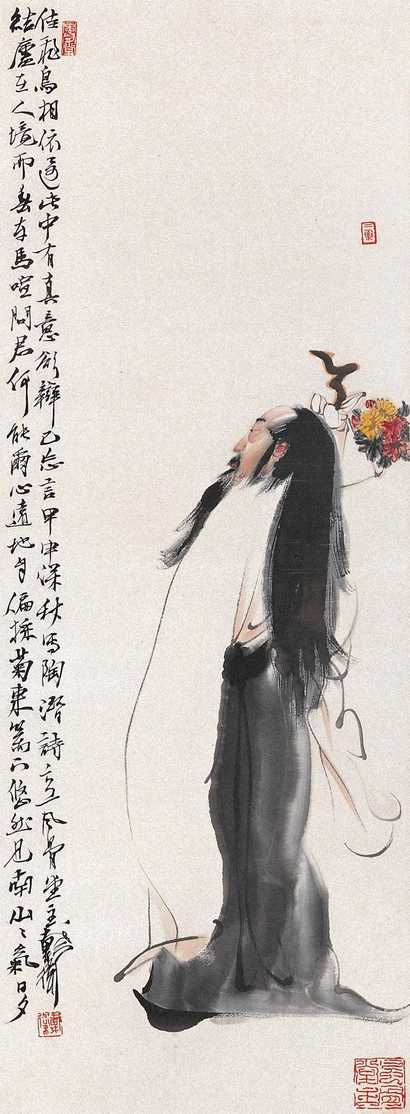 結廬在人境而無車馬喧問君何能爾心遠地自偏採菊東籬下悠然見南山〻氣日夕
佳飛鳥相依還此中有真意欲辯已忘言甲申深秋寫陶潛詩意風骨堂主